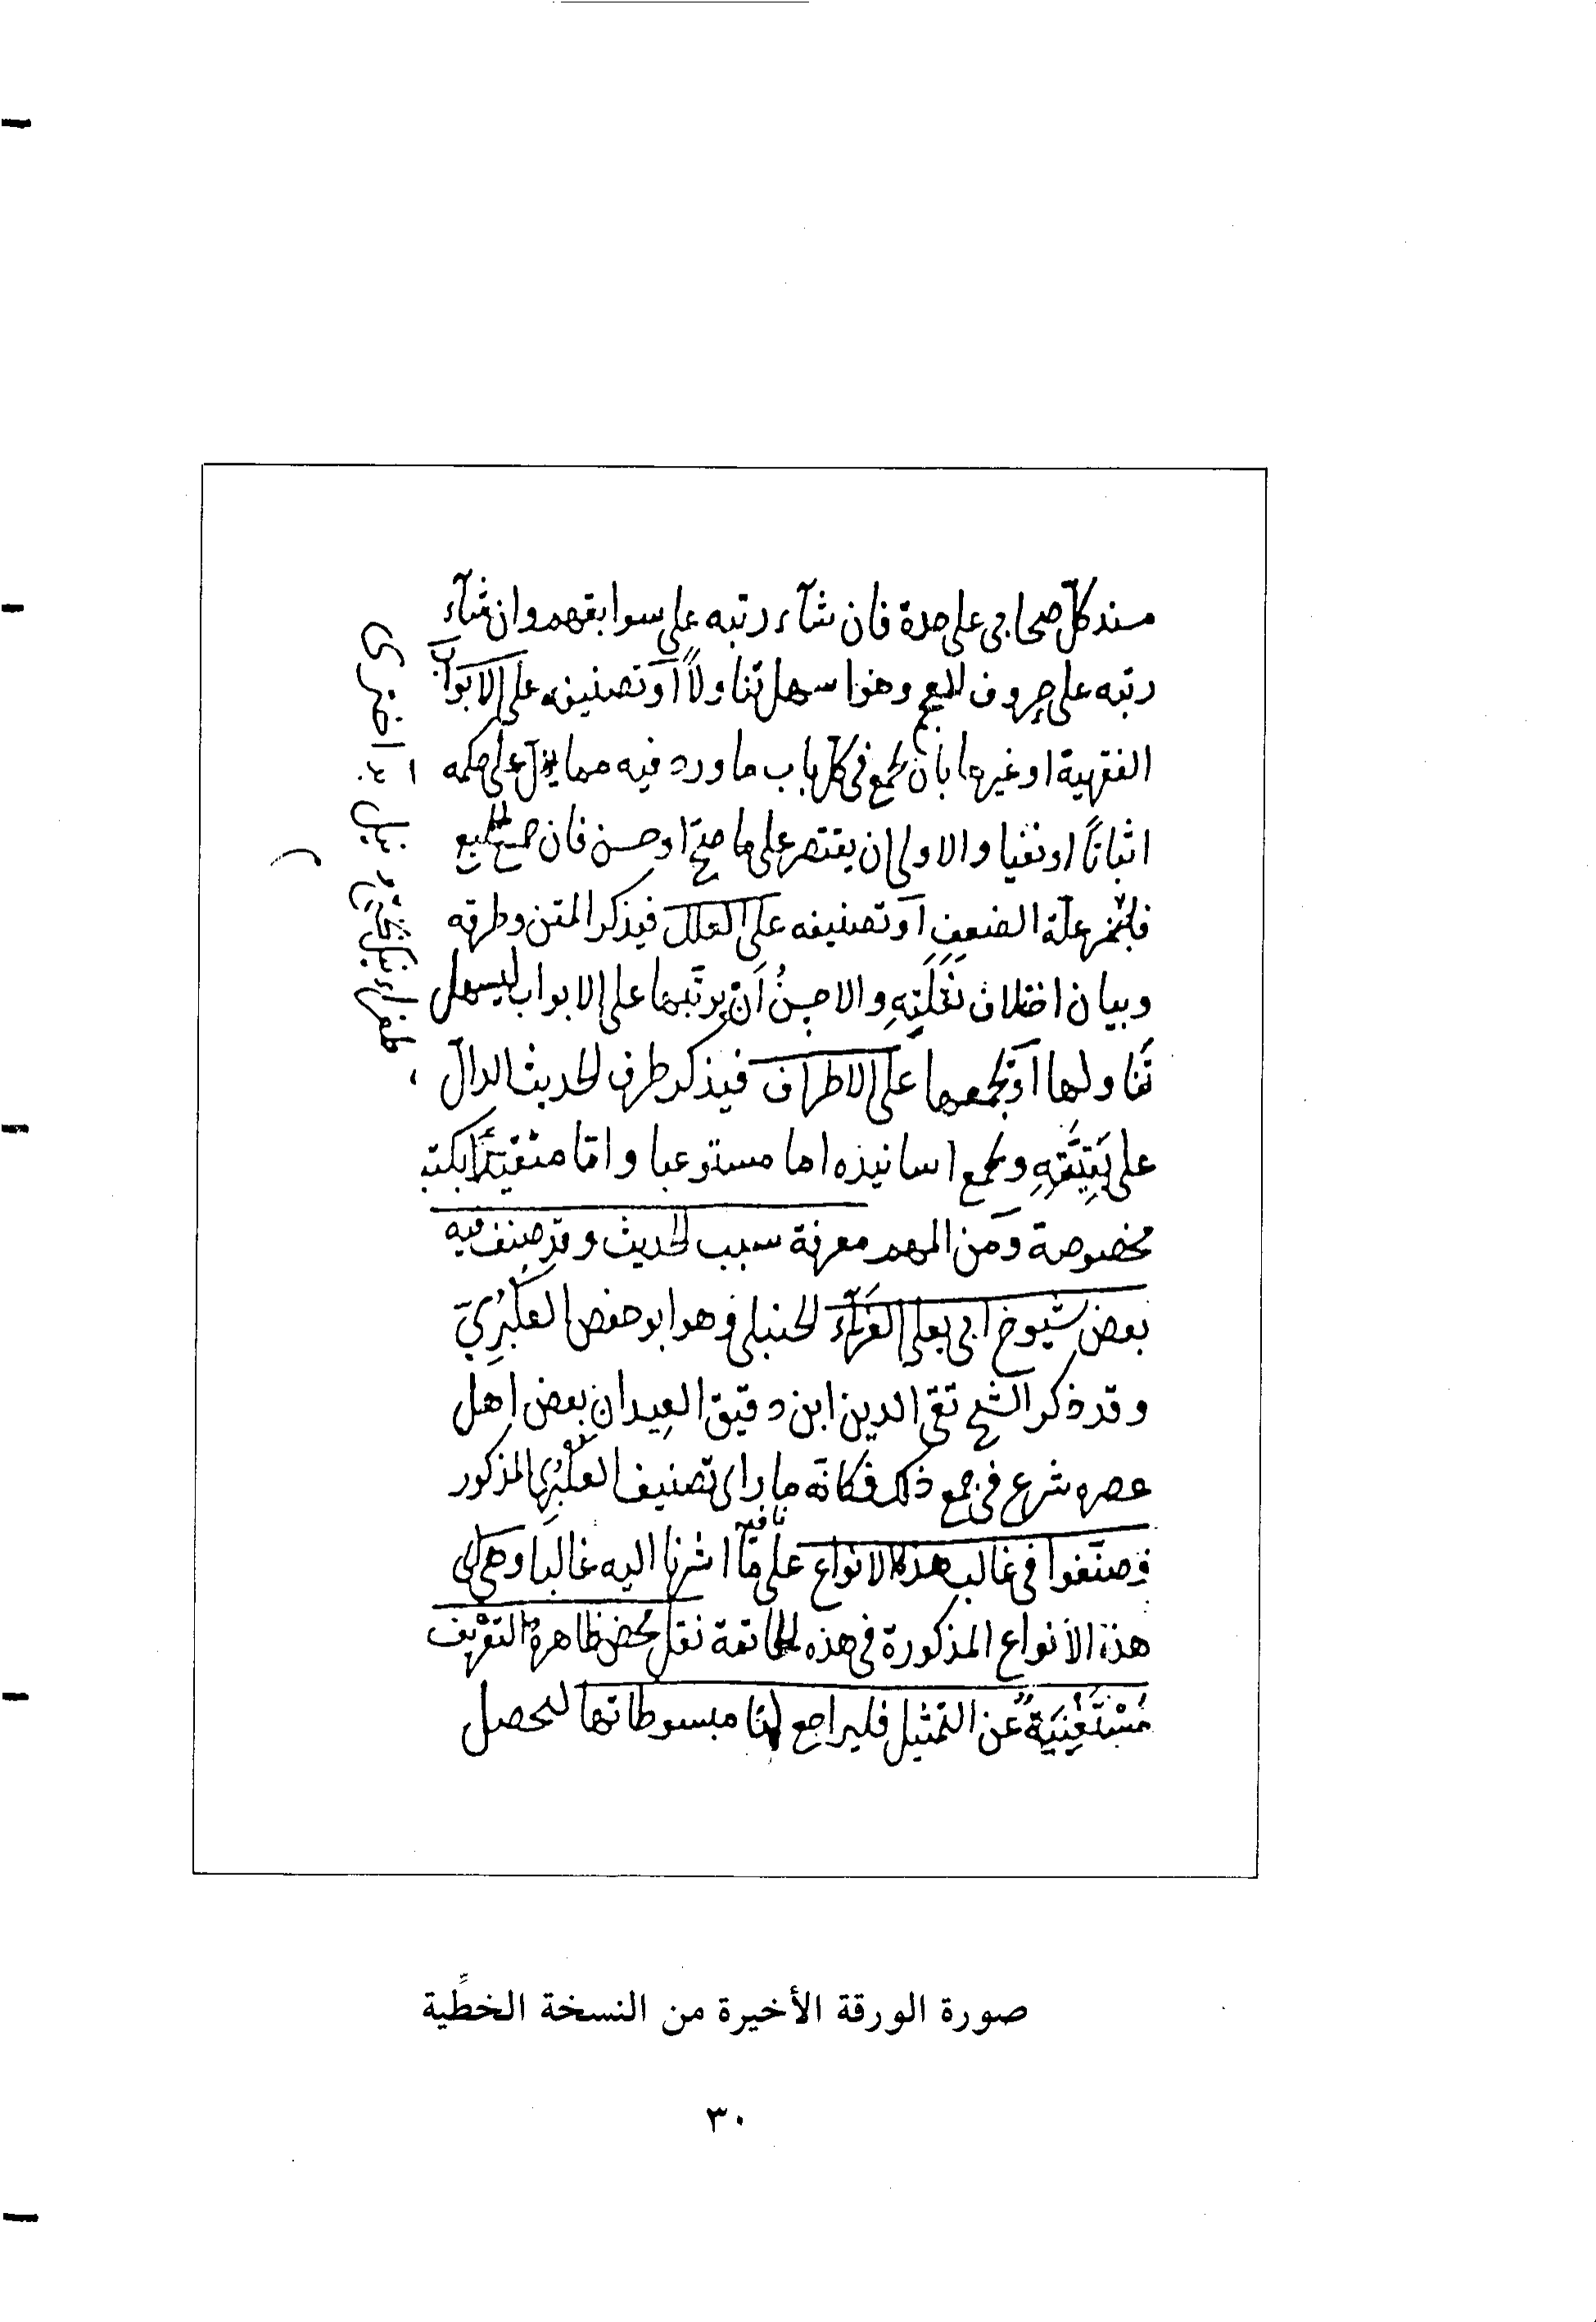 مسند كلّ صحابي على حدة فان شآء رتبه على سوابقهم وان شآء
رتبه على حروف المعجم وهو اسهل تناولاً أو تصنيفه على الابواب
الفقهية او غيرها بان يجمع في كلّ باب ما ورد فيه مما يدلّ على حكمه
اثباتاً او نفيا والاولى ان يقتصر على ما صحّ او حسن فان جمع الجميع
فليبين علّة الضعيف أو تصنيفه على العلل فيذكر المتن وطرقه
وبيان اختلاف نَقَلَتِهِ والاحسنُ أن يرتّبها على الابواب ليسهل
تَناولها أو يجمعها على الاطراف فيذكر طرف الحديث الدالّ
على بَقِيَّتِهِ ويجمع اسانيده اما مستوعبا وامّا متقيّدًا بكتب
مخصوصة ومن المهم معرفة سبب الحديث وقد صنف فيه
بعض شيوخ ابي يعلى الفَرّآء الحنبلي وهو ابو حفص العُكْبُرِيّ
وقد ذكر الشيخ تقي الدين ابن دقيق العيد ان بعض اهل
عصره شرع في جمع ذلك فكانّه ما راى تصنيف العُكْبُرِي المذكور
وصنّفوا في غالب هذه الانواع على مآ اشرنا اليه غالبا وهي اى
هذه الأنواع المذكورة في هذه الخاتمة نقل محض ظاهرة التعريف
مُسْتَغْنِيَةٌ عن التمثيل فليراجع لها مبسوطاتها ليحصل
صورة الورقة الأخيرة من النسخة الخطِّية
٣٠